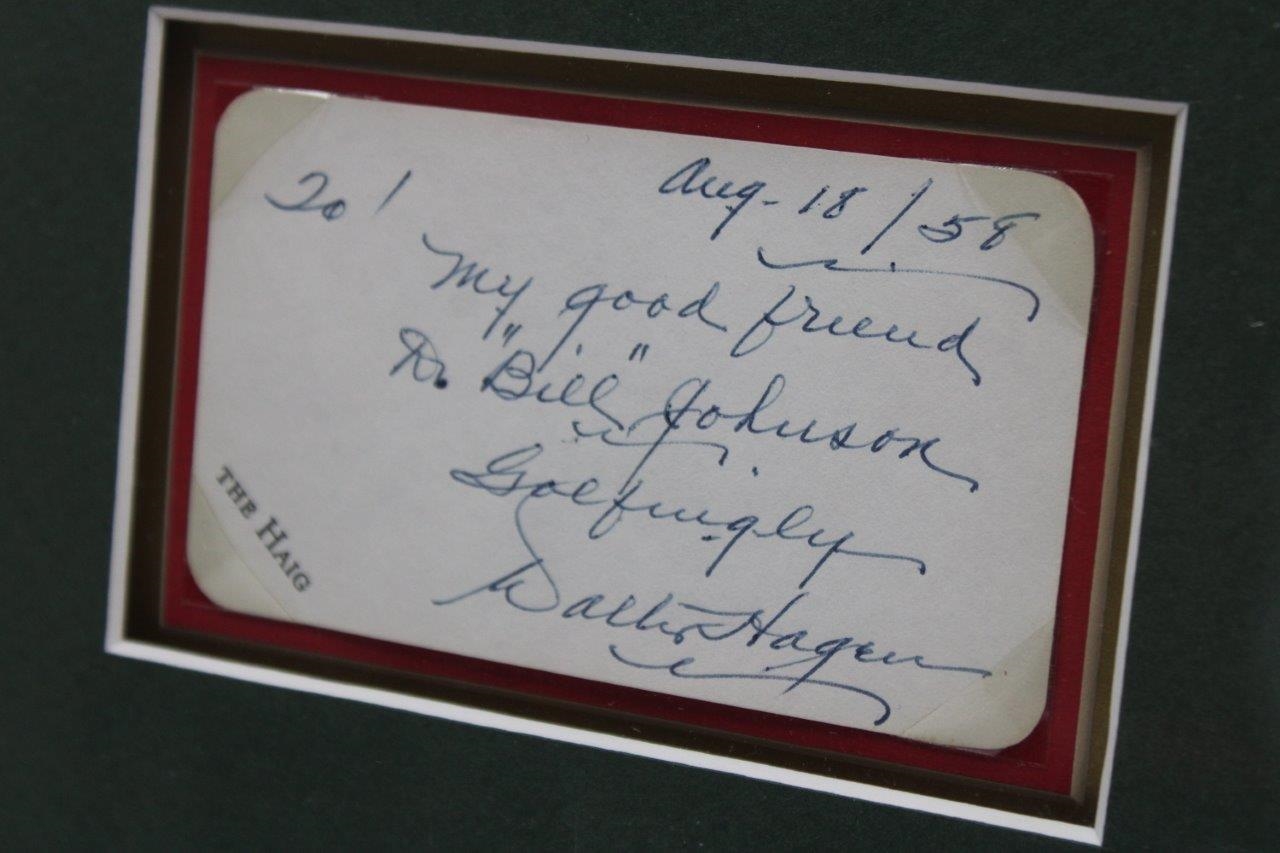 To!
Aug. 18/58
My good friend
Dr. "Bill" Johnson
Golfingly
Walter Hagen
THE HAIG